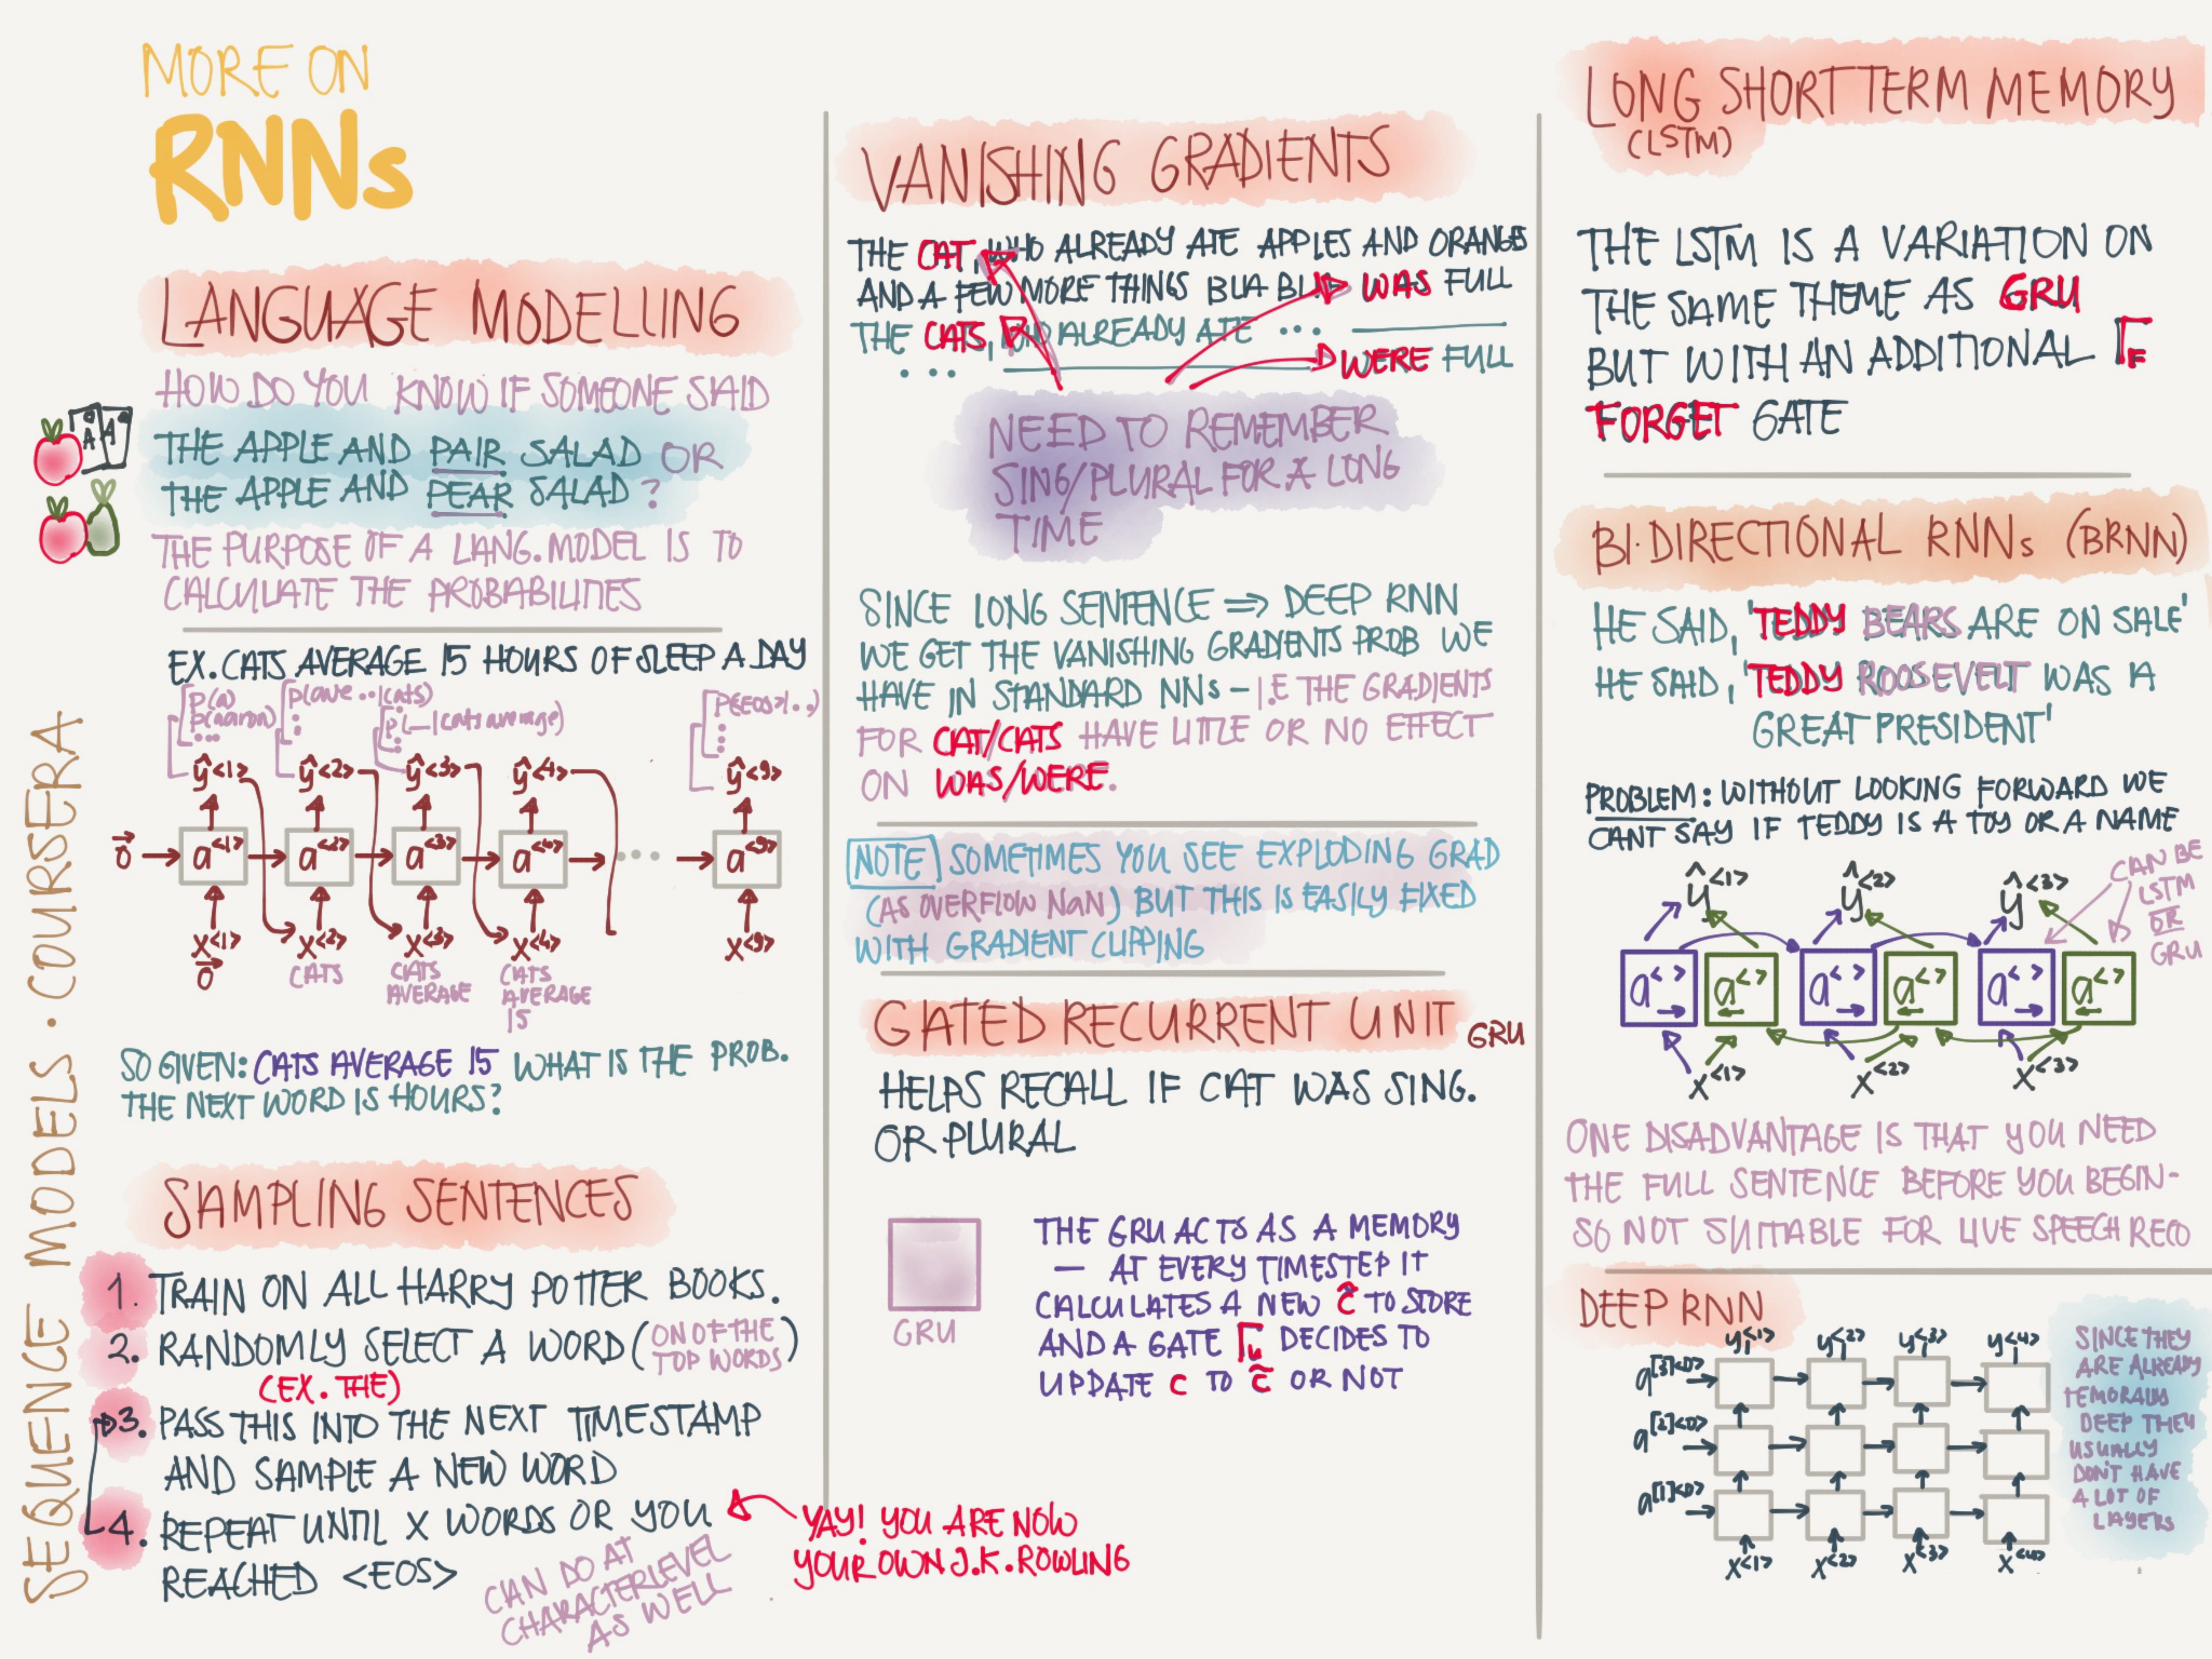 MORE ON
RNNs
LANGUAGE MODELLING
HOW DO YOU KNOW IF SOMEONE SAID
THE APPLE AND PAIR SALAD OR
THE APPLE AND PEAR SALAD ?
THE PURPOSE OF A LANG. MODEL IS TO
CALCULATE THE PROBABILITIES
EX. CATS AVERAGE 15 HOURS OF SLEEP A DAY
p(a)
p(aaron)
...
p(ave..|cats)
p(_|cats average)
P(<EOS>|..)
ŷ<1> ŷ<2> ŷ<3> ŷ<4> ŷ<9>
0 a<1> a<2> a<3> a<4> ... a<9>
x<1> x<2> x<3> x<4> x<9>
0
CATS
CATS
AVERAGE
CATS
AVERAGE
15
SO GIVEN: CATS AVERAGE 15 WHAT IS THE PROB.
THE NEXT WORD IS HOURS?
SAMPLING SENTENCES
1. TRAIN ON ALL HARRY POTTER BOOKS.
2. RANDOMLY SELECT A WORD (ON OF THE
TOP WORDS)
(EX. THE)
3. PASS THIS INTO THE NEXT TIMESTAMP
AND SAMPLE A NEW WORD
4. REPEAT UNTIL X WORDS OR YOU
REACHED <EOS>
CAN DO AT
CHARACTERLEVEL
AS WELL
YAY! YOU ARE NOW
YOUR OWN J.K. ROWLING
SEQUENCE MODELS · COURSERA
VANISHING GRADIENTS
THE CAT, WHO ALREADY ATE APPLES AND ORANGES
AND A FEW MORE THINGS BLA BLA WAS FULL
THE CATS, WHO ALREADY ATE ...
... WERE FULL
NEED TO REMEMBER
SING/PLURAL FOR A LONG
TIME
SINCE LONG SENTENCE => DEEP RNN
WE GET THE VANISHING GRADIENTS PROB WE
HAVE IN STANDARD NNs – I.E THE GRADIENTS
FOR CAT/CATS HAVE LITTLE OR NO EFFECT
ON WAS/WERE.
NOTE SOMETIMES YOU SEE EXPLODING GRAD
(AS OVERFLOW NaN) BUT THIS IS EASILY FIXED
WITH GRADIENT CLIPPING
GATED RECURRENT UNIT GRU
HELPS RECALL IF CAT WAS SING.
OR PLURAL
GRU
THE GRU ACTS AS A MEMORY
— AT EVERY TIMESTEP IT
CALCULATES A NEW c̃ TO STORE
AND A GATE Γu DECIDES TO
UPDATE C TO c̃ OR NOT
LONG SHORT TERM MEMORY
(LSTM)
THE LSTM IS A VARIATION ON
THE SAME THEME AS GRU
BUT WITH AN ADDITIONAL ΓF
FORGET GATE
BI·DIRECTIONAL RNNs (BRNN)
HE SAID, 'TEDDY BEARS ARE ON SALE'
HE SAID, 'TEDDY ROOSEVELT WAS A
GREAT PRESIDENT'
PROBLEM: WITHOUT LOOKING FORWARD WE
CANT SAY IF TEDDY IS A TOY OR A NAME
ŷ<1> ŷ<2> ŷ<3>
CAN BE
LSTM
OR
GRU
a< > a< > a< > a< > a< > a< >
x<1> x<2> x<3>
ONE DISADVANTAGE IS THAT YOU NEED
THE FULL SENTENCE BEFORE YOU BEGIN-
SO NOT SUITABLE FOR LIVE SPEECH RECO
DEEP RNN
y<1> y<2> y<3> y<4>
a[3]<0>
a[2]<0>
a[1]<0>
x<1> x<2> x<3> x<4>
SINCE THEY
ARE ALREADY
TEMORALLY
DEEP THEY
USUALLY
DON'T HAVE
A LOT OF
LAYERS